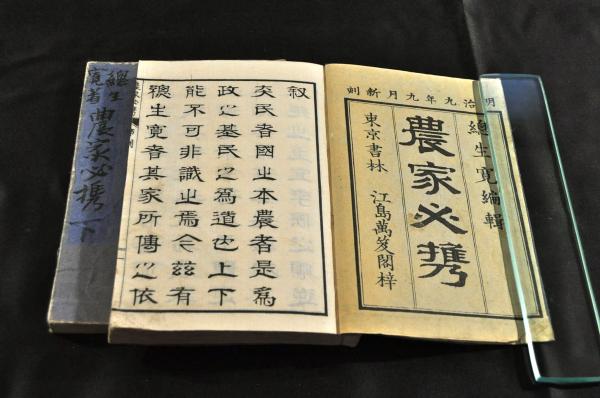 明治九年九月新刻
總生寛編輯
農家必携
東京書林 江島萬笈閣梓
叙
夫民者國之本農者是爲
政之基民之爲道也上下
能不可非識之焉今茲有
總生寛者其家所傳之依
總生寛著
農家必携